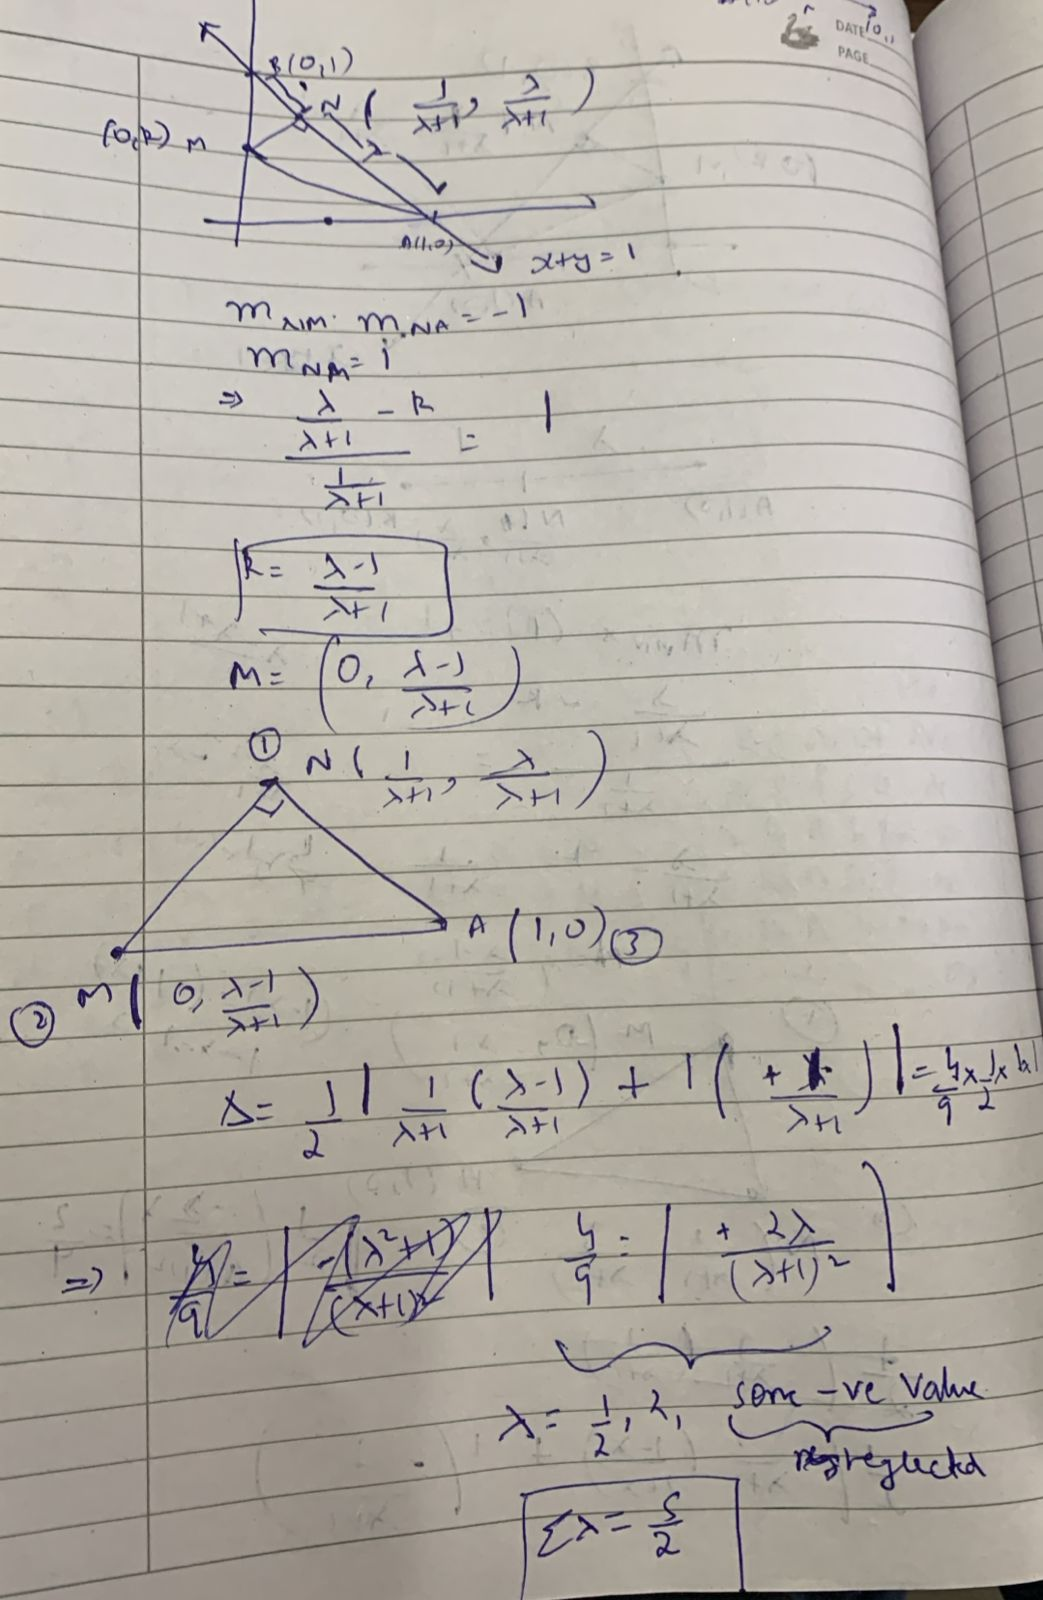 DATE
PAGE
B(0,1)
N ( 1/(λ+1), λ/(λ+1) )
(0,k) M
λ
A(1,0)
x+y=1
m_NM · m_NA = -1
m_NM = 1
⇒ (λ/(λ+1) - k) / (1/(λ+1)) = 1
k = (λ-1)/(λ+1)
M = (0, (λ-1)/(λ+1))
① N ( 1/(λ+1), λ/(λ+1) )
A (1,0) ③
② M ( 0, (λ-1)/(λ+1) )
Δ = 1/2 | 1/(λ+1) ((λ-1)/(λ+1)) + 1 ( + 1/(λ+1) ) | = 4/9 × 1/2 × 1×1
⇒ 4/9 = | -(λ²+1)/(λ+1)² | 4/9 = | + 2λ/(λ+1)² |
λ = 1/2, 2, some -ve value
neglected
Σλ = 5/2